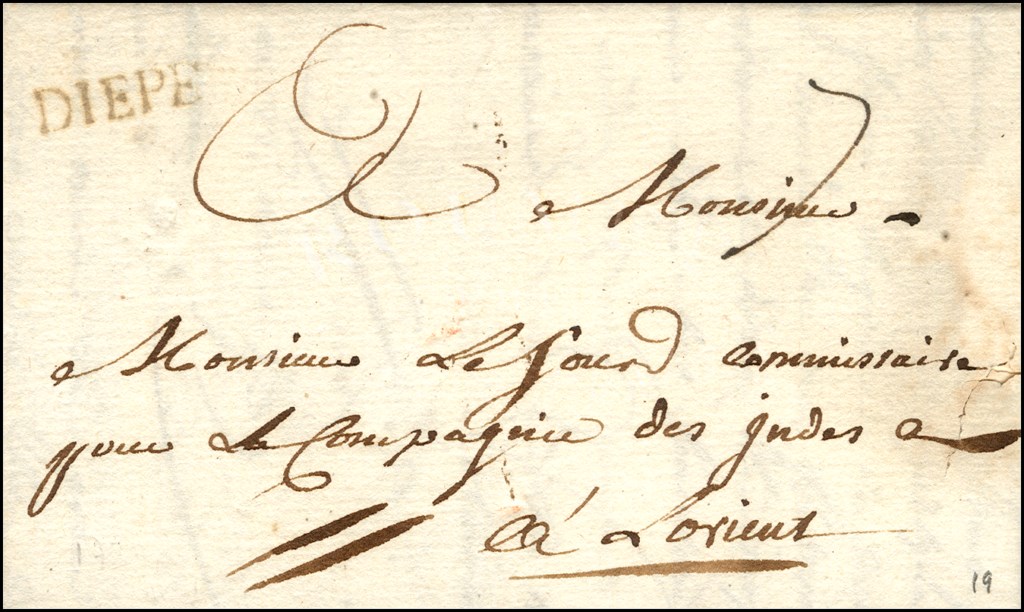 DIEPE
A Monsieur
Monsieur Le fourd Commissaire
pour La Compagnie des jndes a
à Lorient
19